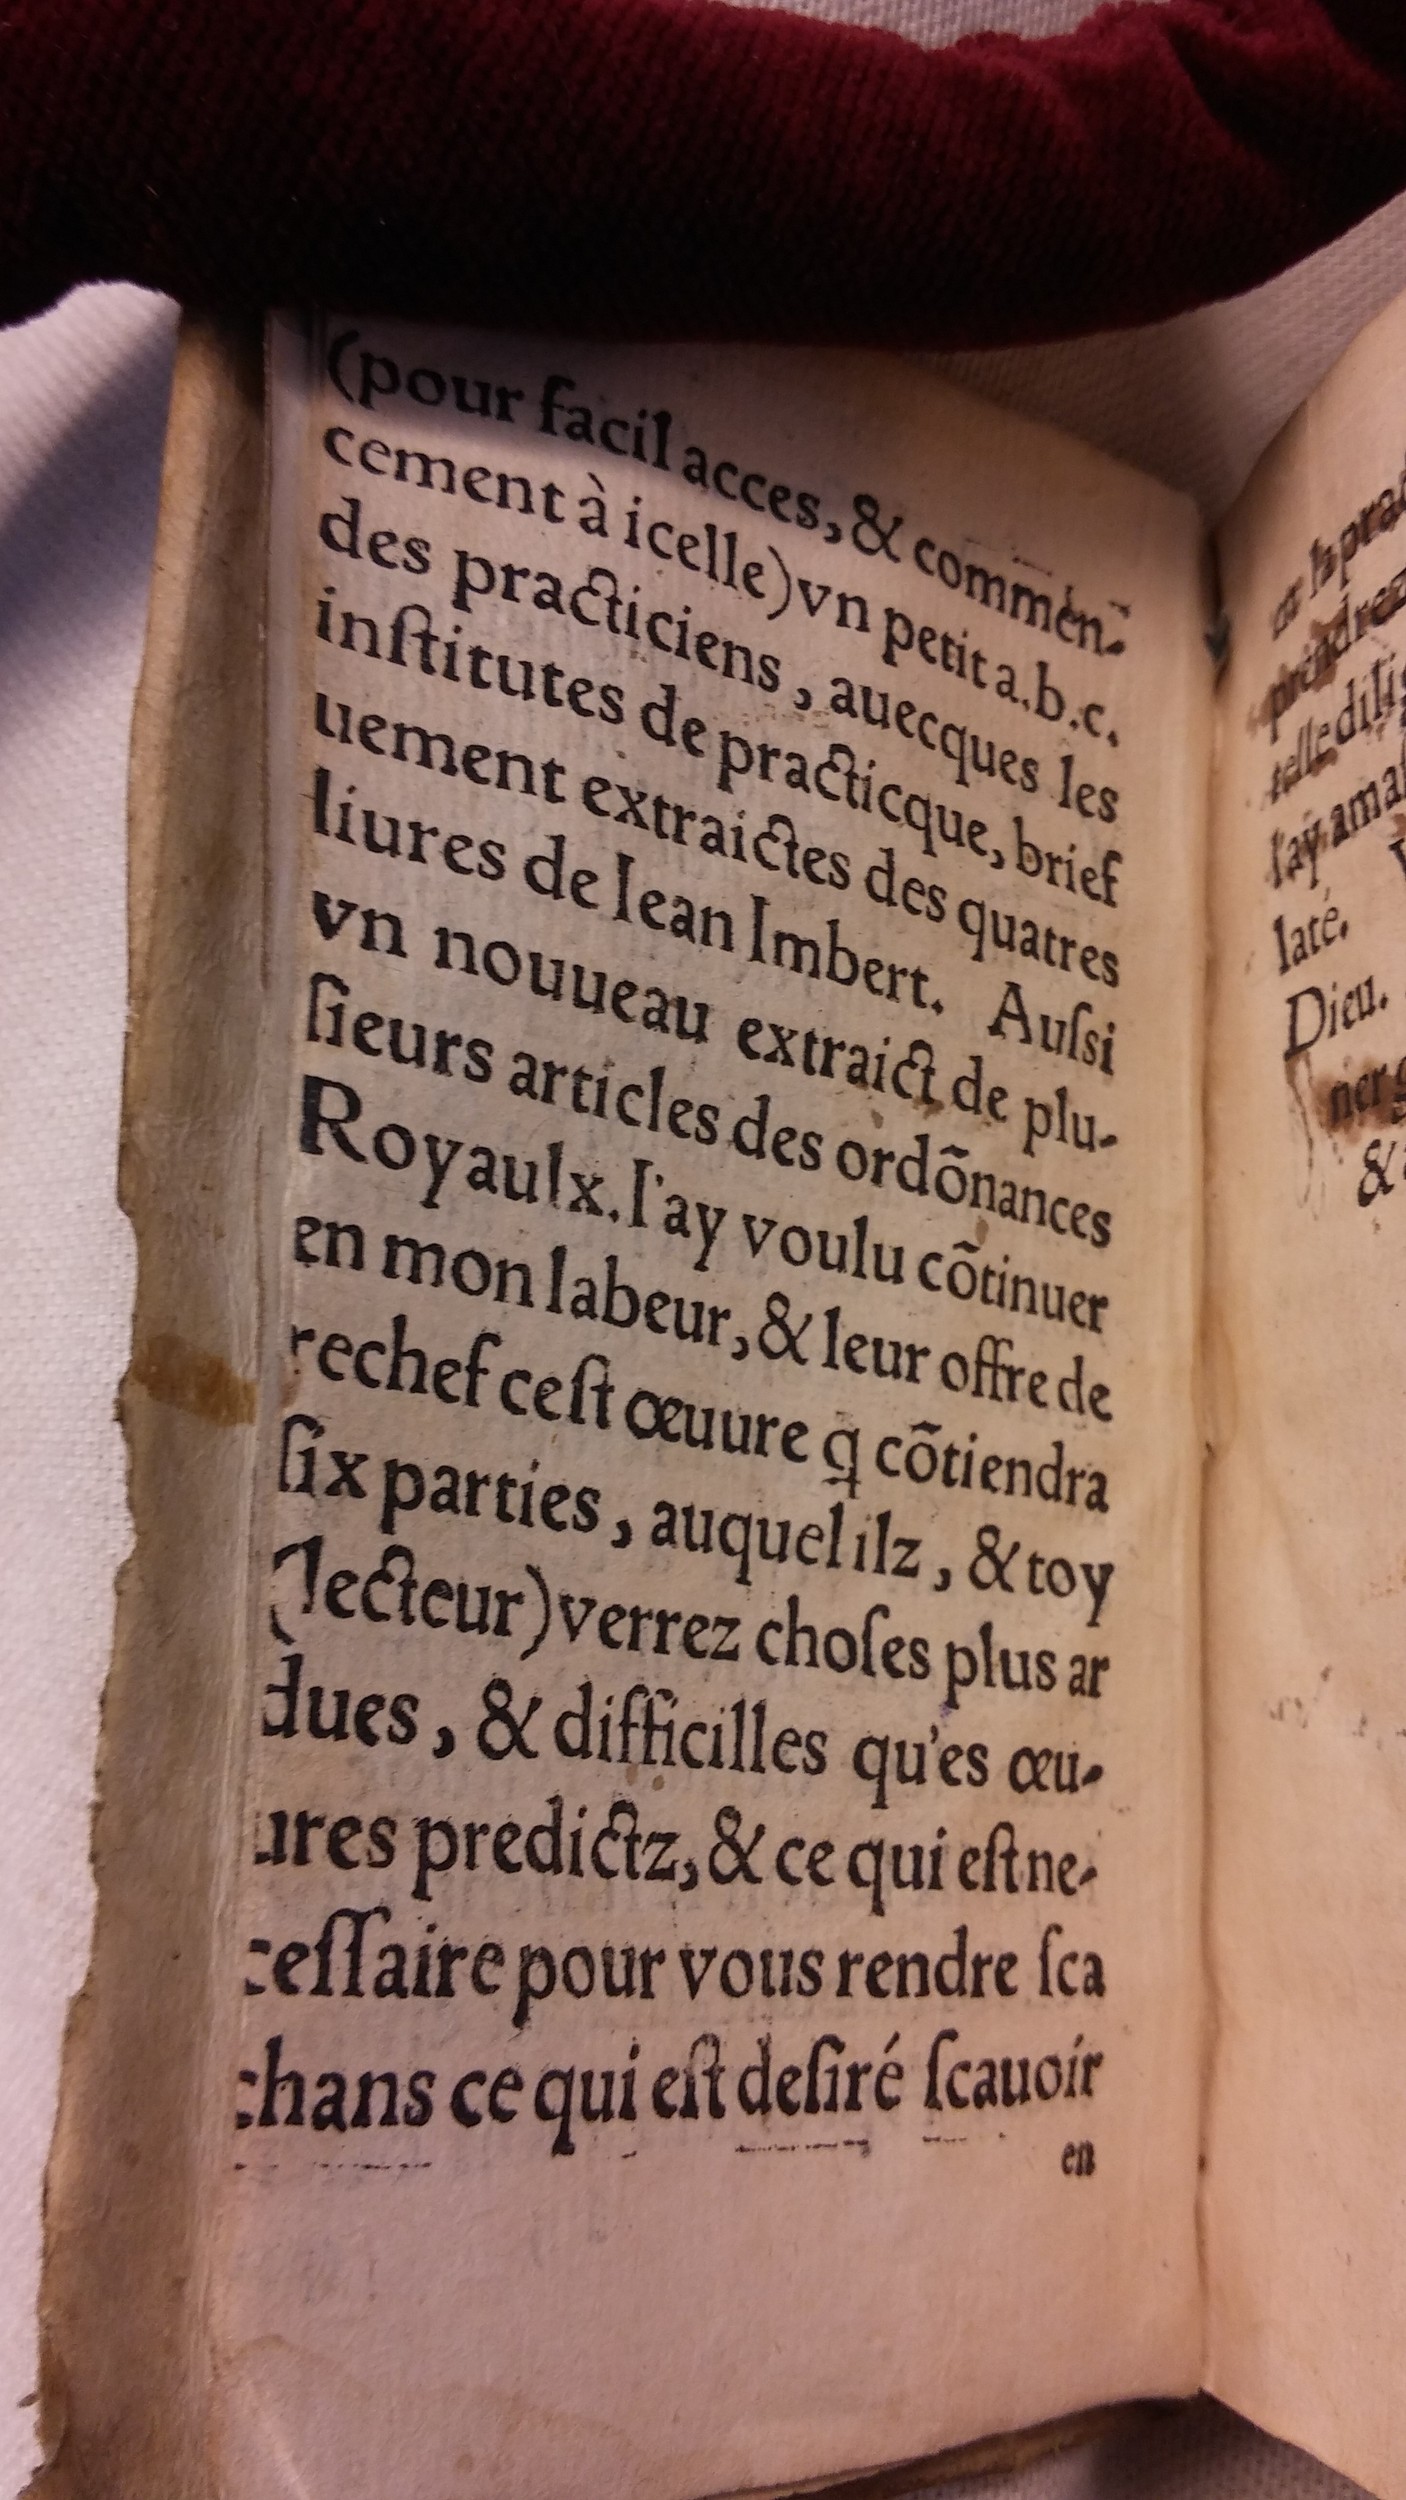 (pour facil acces, & commen-
cement à icelle) vn petit a.b.c.
des practiciens, auecques les
inſtitutes de practicque, brief
uement extraictes des quatres
liures de Iean Imbert. Auſsi
vn nouueau extraict de plu-
ſieurs articles des ordõnances
Royaulx. I'ay voulu cõtinuer
en mon labeur, & leur offre de
rechef ceſt œuure ꝗ cõtiendra
ſix parties, auquel ilz, & toy
(lecteur) verrez choſes plus ar
dues, & difficilles qu'es œu-
ures predictz, & ce qui eſt ne-
ceſſaire pour vous rendre ſca
chans ce qui eſt deſiré ſcauoir
en
telle dili
I'ay amaſ
laté.
Dieu.
ner
&